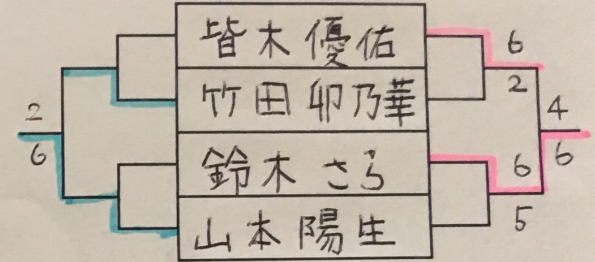 皆木優佑
竹田卯乃華
鈴木さら
山本陽生
2
6
6
2
4
6
6
5